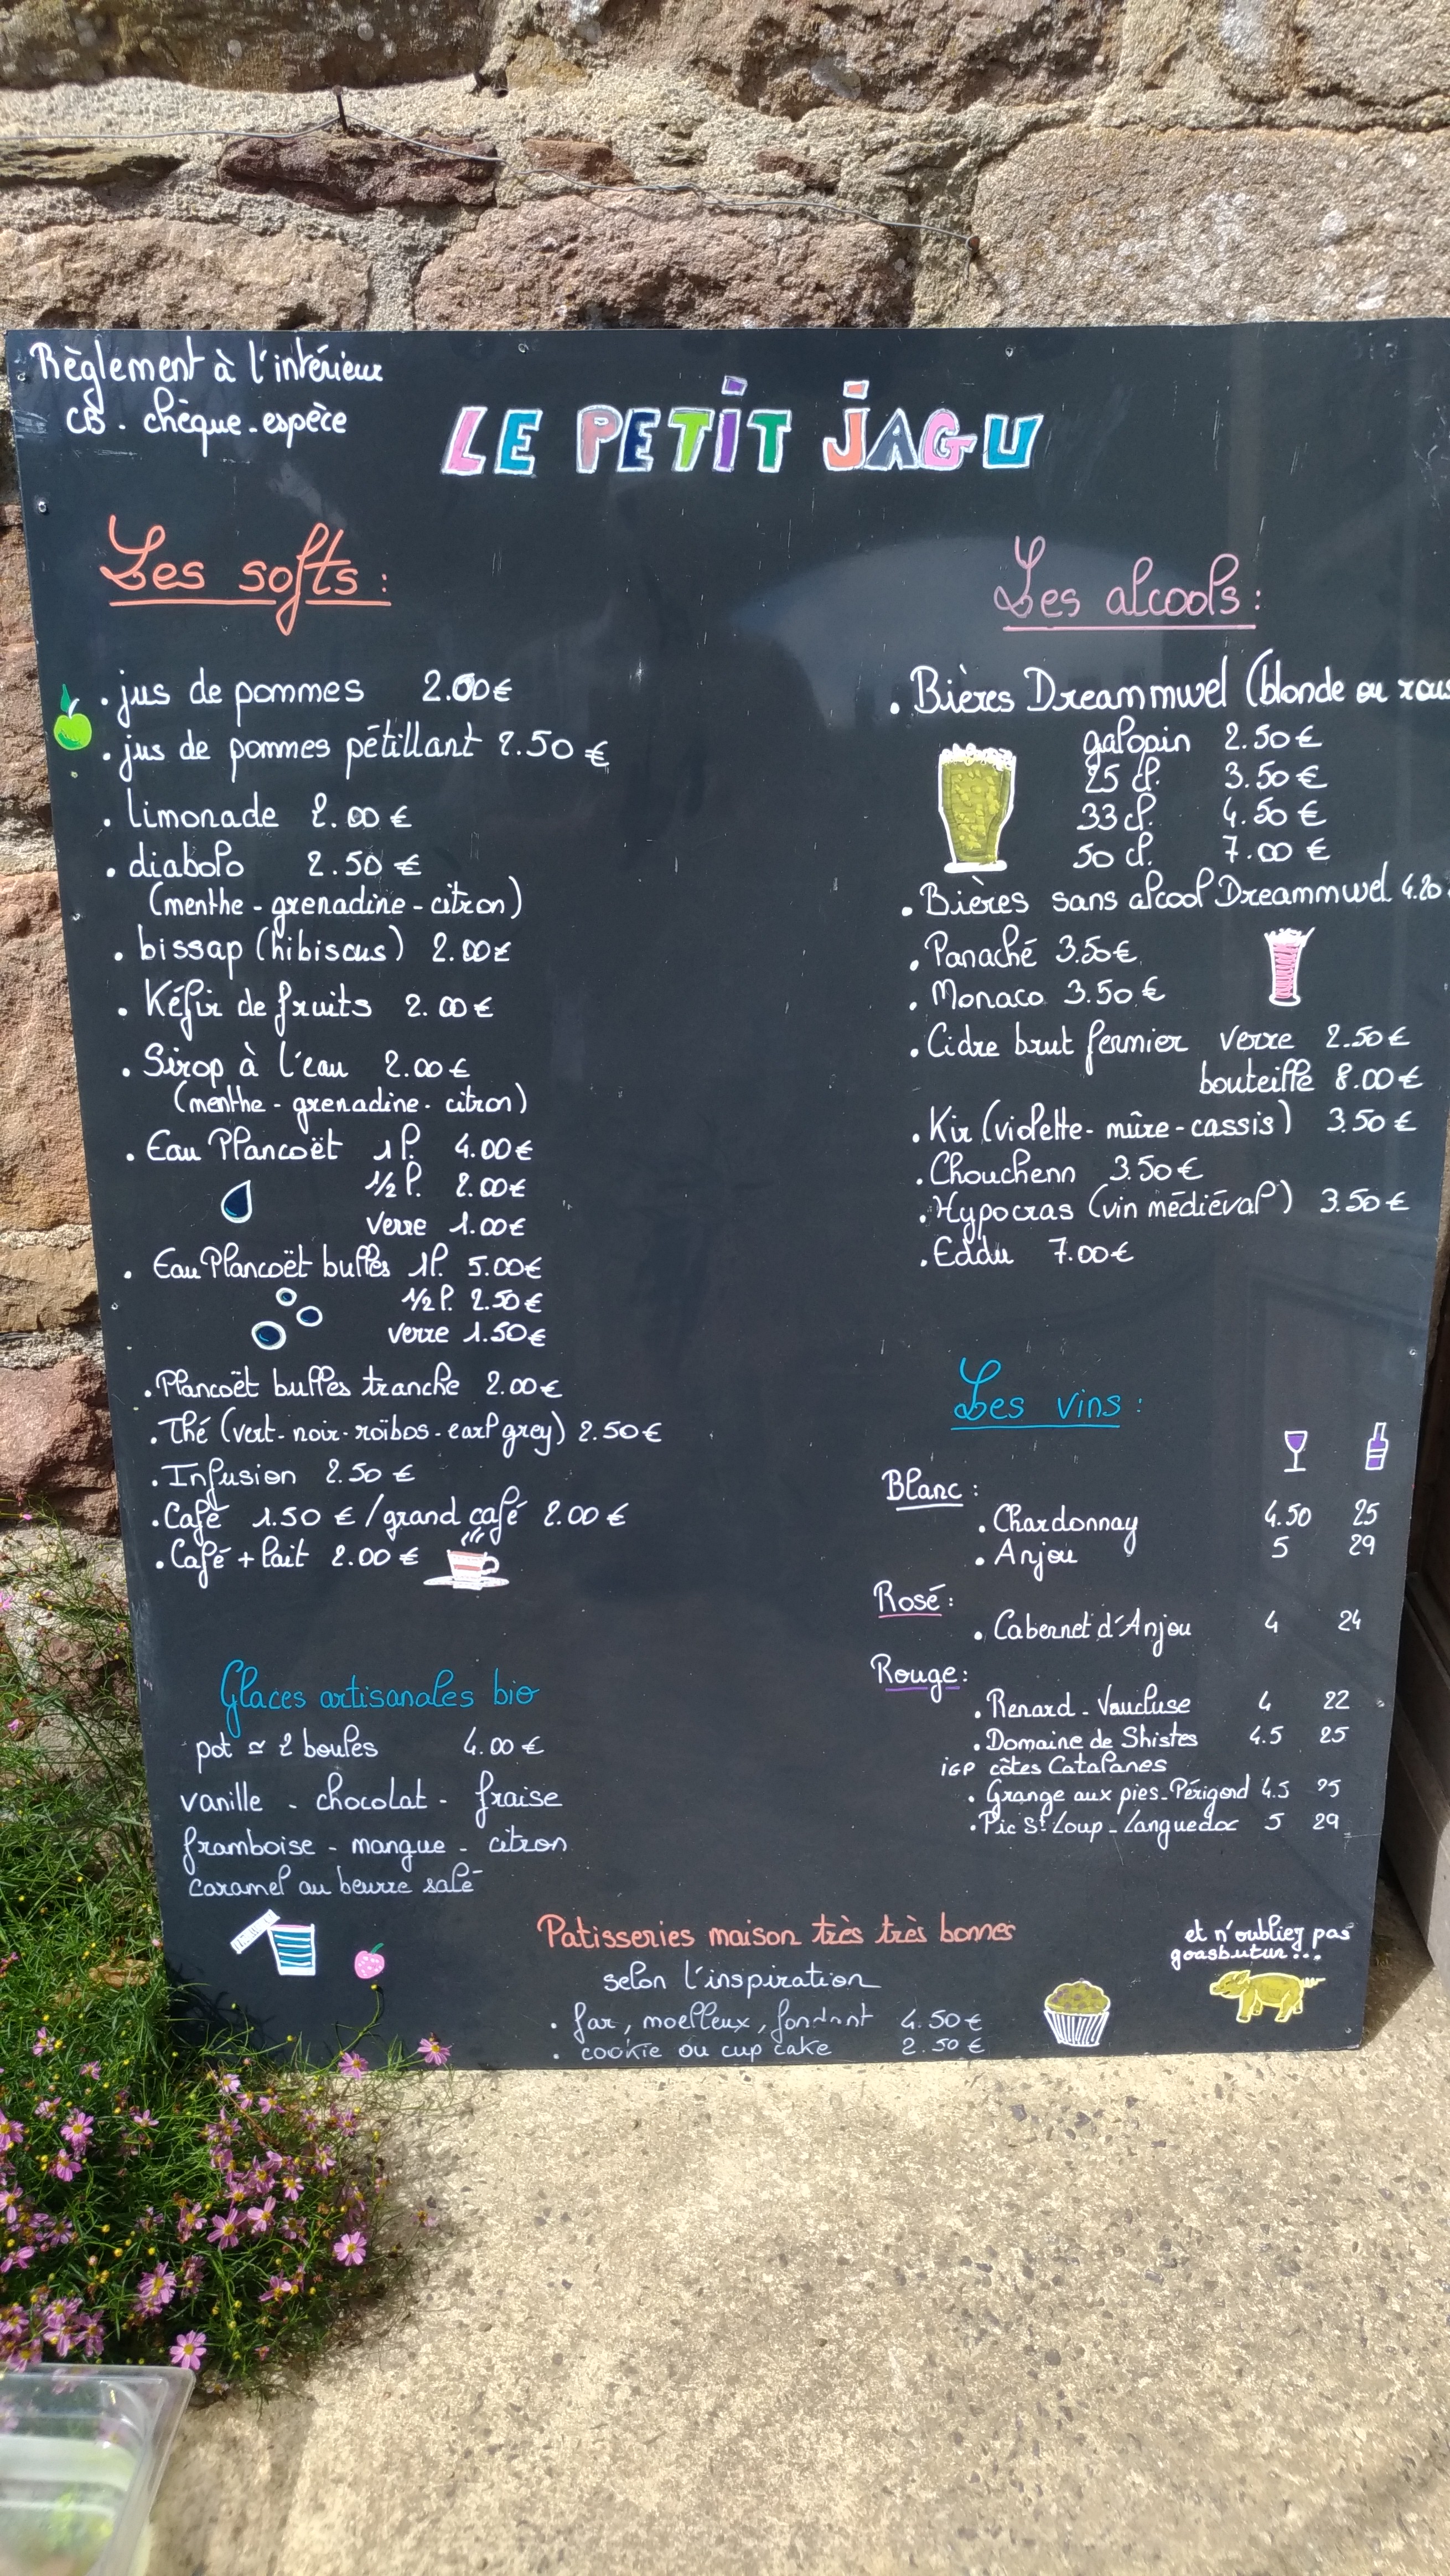 Règlement à l'intérieur
CB - chèque - espèce
LE PETIT JAGU
Les softs :
. jus de pommes 2.00€
. jus de pommes pétillant 2.50€
. limonade 2.00€
. diabolo 2.50€
(menthe - grenadine - citron)
. bissap (hibiscus) 2.00€
. Kéfir de fruits 2.00€
. Sirop à l'eau 2.00€
(menthe - grenadine - citron)
. Eau Plancoët 1l. 4.00€
1/2 l. 2.00€
verre 1.00€
. Eau Plancoët bulles 1l. 5.00€
1/2 l. 2.50€
verre 1.50€
. Plancoët bulles tranche 2.00€
. Thé (vert - noir - roïbos - earl grey) 2.50€
. Infusion 2.50€
. Café 1.50€ / grand café 2.00€
. Café + lait 2.00€
Glaces artisanales bio
pot ≃ 2 boules 4.00€
vanille - chocolat - fraise
framboise - mangue - citron
caramel au beurre salé
Les alcools :
. Bières Dreammwel (blonde ou rous
galopin 2.50€
25 cl. 3.50€
33 cl. 4.50€
50 cl. 7.00€
. Bières sans alcool Dreammwel 4.20
. Panaché 3.50€
. Monaco 3.50€
. Cidre brut fermier verre 2.50€
bouteille 8.00€
. Kir (violette - mûre - cassis) 3.50€
. Chouchenn 3.50€
. Hypocras (vin médiéval) 3.50€
. Eddu 7.00€
Les vins :
Blanc :
. Chardonnay 4.50 25
. Anjou 5 29
Rosé :
. Cabernet d'Anjou 4 24
Rouge :
. Renard - Vaucluse 4 22
. Domaine de Shistes 4.5 25
IGP côtes Catalanes
. Grange aux pies - Périgord 4.5 25
. Pic St Loup - Languedoc 5 29
Patisseries maison très très bonnes
selon l'inspiration
. far, moelleux, fondant 4.50€
. cookie ou cup cake 2.50€
et n'oubliez pas
goasbutun...